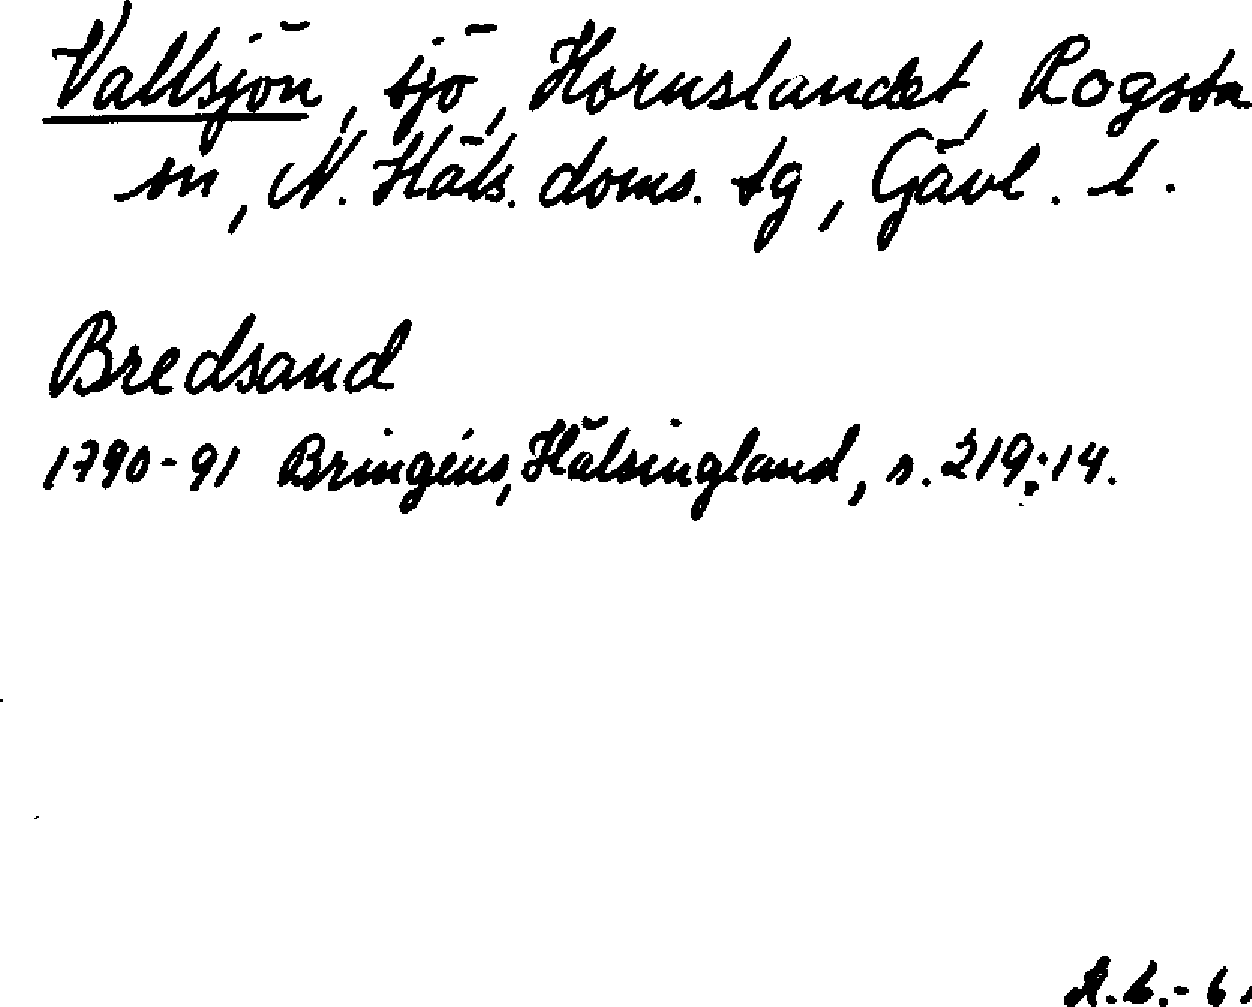 Vallsjön, sjö, Hornslandet, Rogsta
sn, N. Häls. doms. tg, Gävl. l.
Bredsand
1790-91 Bringéus, Hälsingland, s. 219:14.